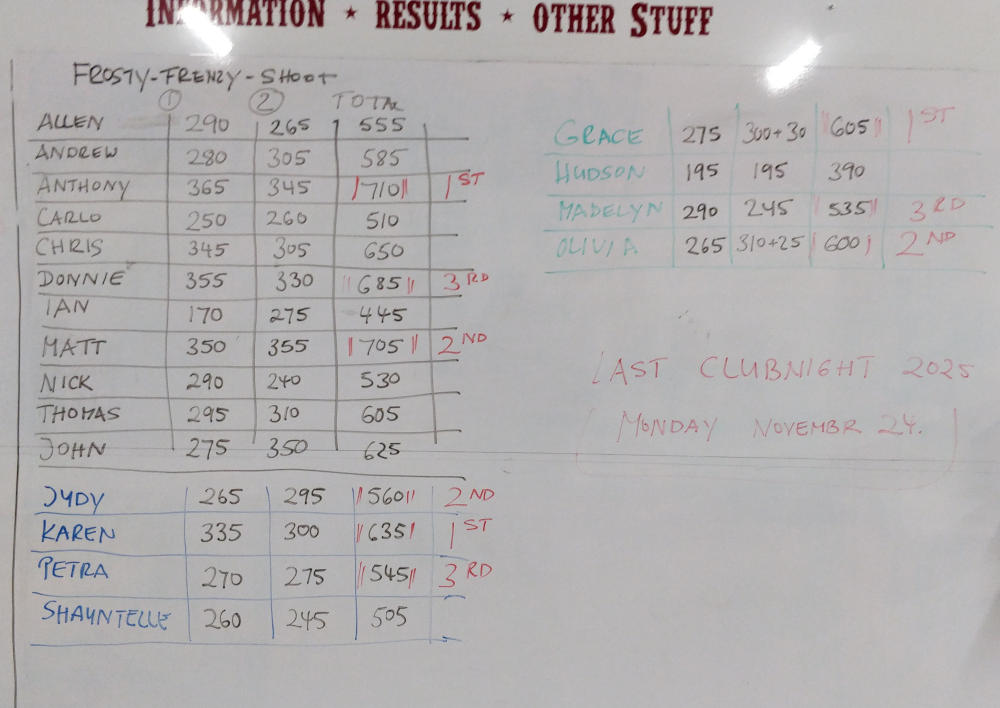 INFORMATION ★ RESULTS ★ OTHER STUFF
FROSTY-FRENZY-SHOOT
① ② TOTAL
ALLEN 290 265 555
ANDREW 280 305 585
ANTHONY 365 345 710 1ST
CARLO 250 260 510
CHRIS 345 305 650
DONNIE 355 330 685 3RD
IAN 170 275 445
MATT 350 355 705 2ND
NICK 290 240 530
THOMAS 295 310 605
JOHN 275 350 625
JUDY 265 295 560 2ND
KAREN 335 300 635 1ST
PETRA 270 275 545 3RD
SHAUNTELLE 260 245 505
GRACE 275 300+30 605 1ST
HUDSON 195 195 390
MADELYN 290 245 535 3RD
OLIVIA 265 310+25 600 2ND
LAST CLUBNIGHT 2025
MONDAY NOVEMBR 24.